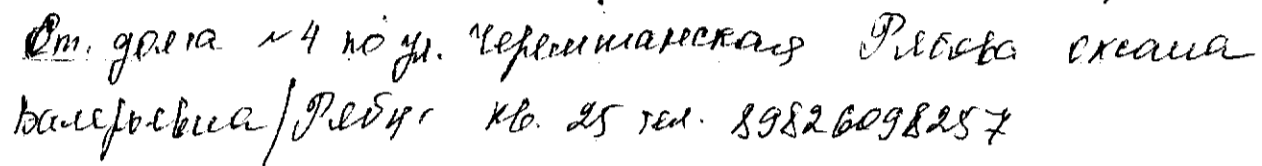 От. дома №4 по ул. Черемшанская Рябова Оксана
Валерьевна/Рябу кв. 25 тел. 89826098257